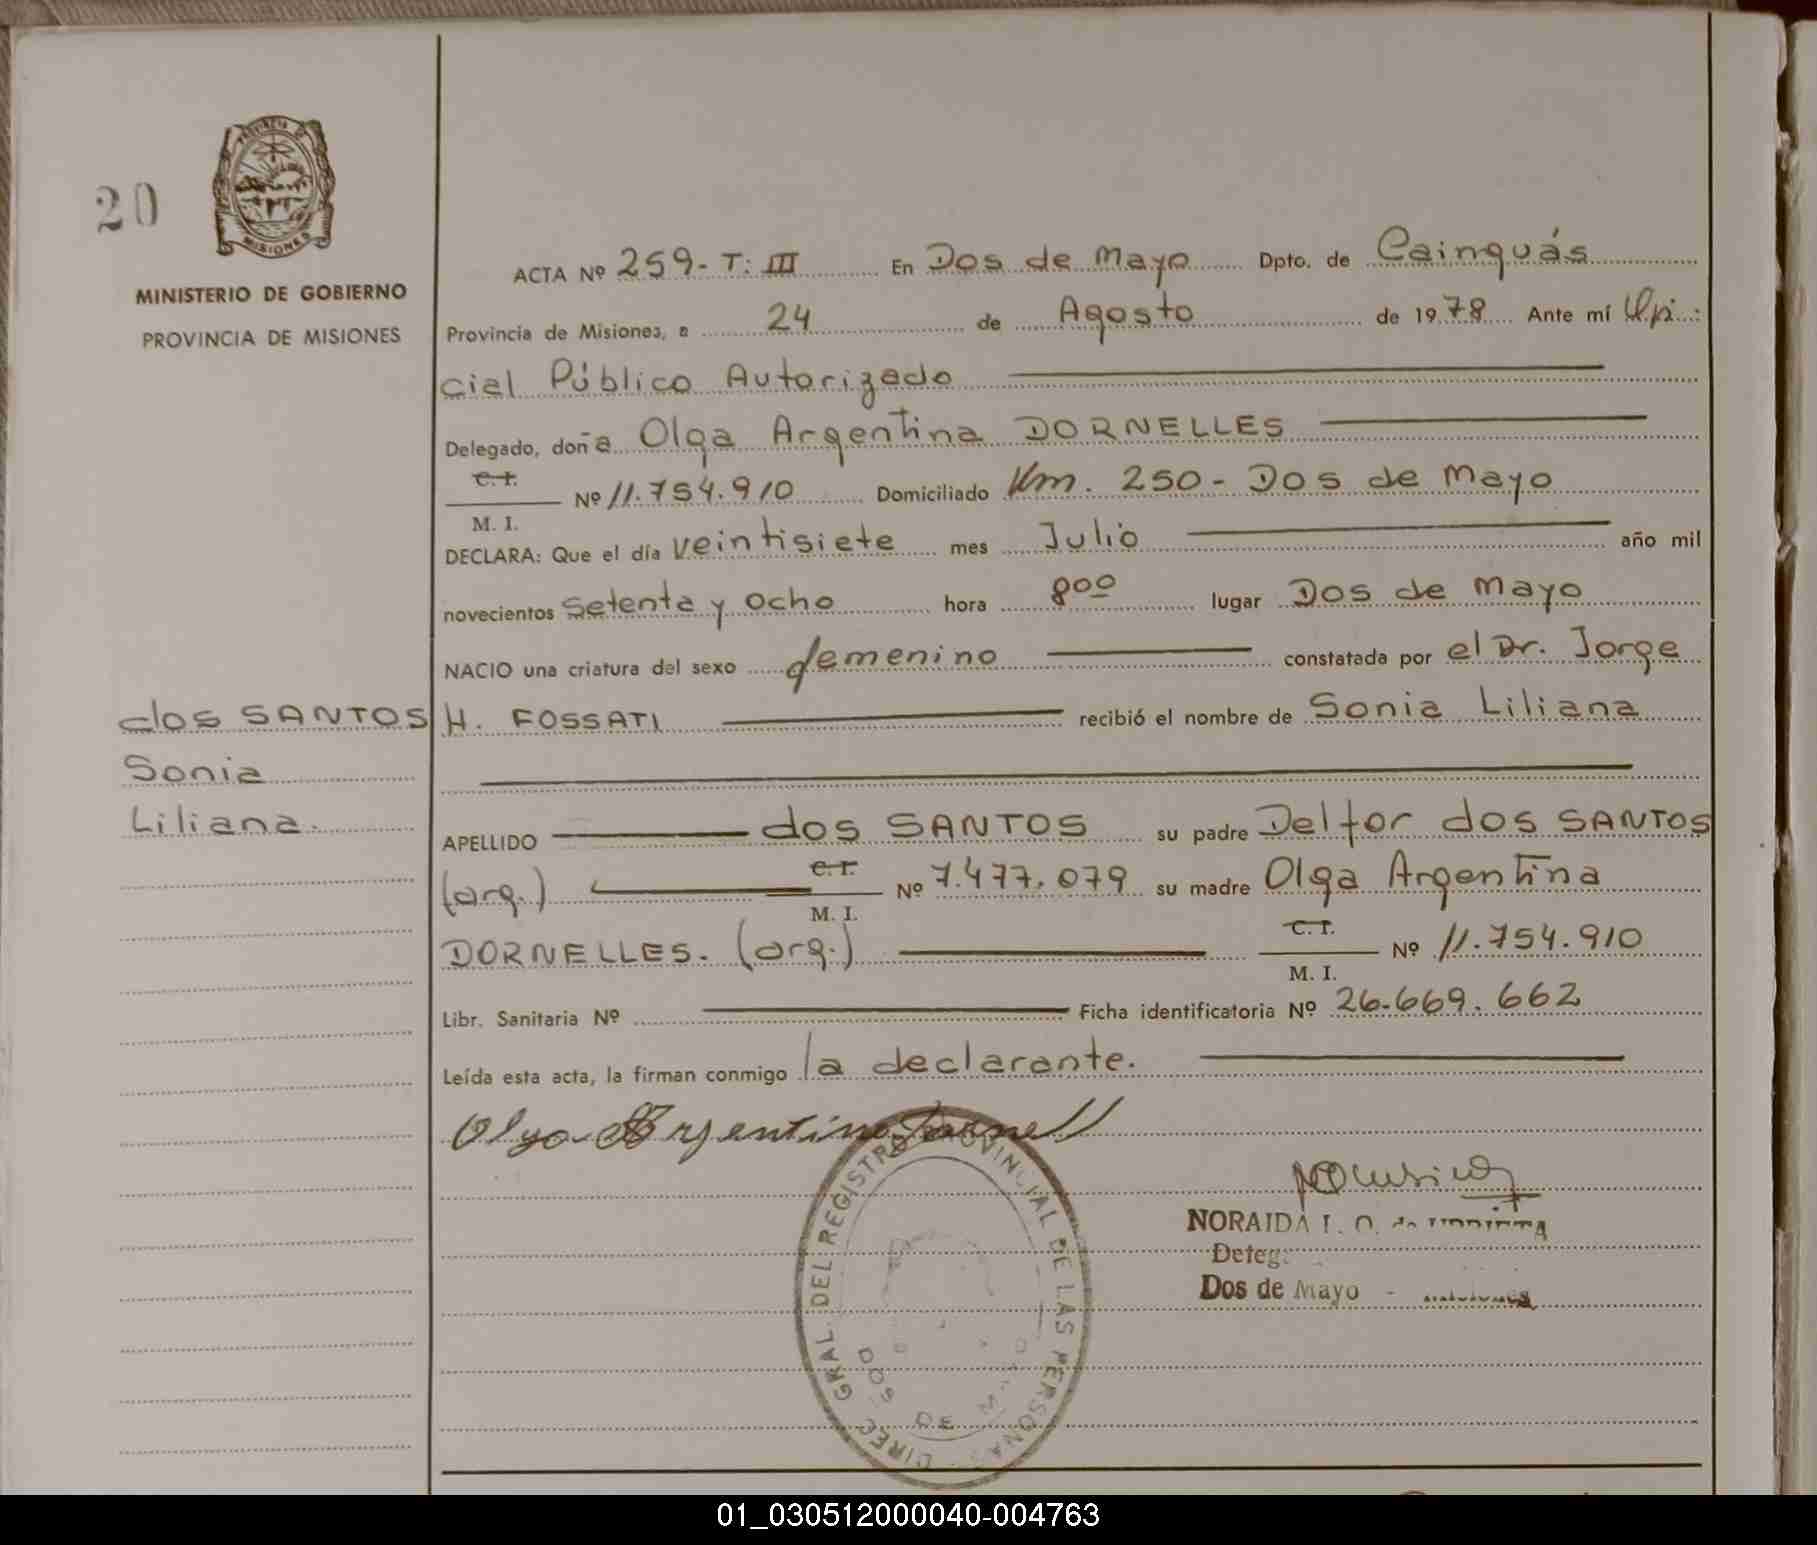 20
PROVINCIA DE
MISIONES
MINISTERIO DE GOBIERNO
PROVINCIA DE MISIONES
dos SANTOS
Sonia
Liliana.
ACTA Nº 259- T: III En Dos de Mayo Dpto. de Cainguás
Provincia de Misiones, a 24 de Agosto de 1978 Ante mí Ofi:
cial Público Autorizado
Delegado, doña Olga Argentina DORNELLES
C.I.
M. I. Nº 11.754.910 Domiciliado Km. 250- Dos de Mayo
DECLARA: Que el día veintisiete mes Julio año mil
novecientos setenta y ocho hora 8oo lugar Dos de Mayo
NACIO una criatura del sexo femenino constatada por el Dr. Jorge
H. FOSSATI recibió el nombre de Sonia Liliana
APELLIDO dos SANTOS su padre Delfor dos SANTOS
(arg.) C.I. M. I. Nº 7.477.079 su madre Olga Argentina
DORNELLES. (arg.) C.I. M. I. Nº 11.754.910
Libr. Sanitaria Nº Ficha identificatoria Nº 26.669.662
Leída esta acta, la firman conmigo la declarante.
Olga Argentina Dornell
DIREC. GRAL. DEL REGISTRO PROVINCIAL DE LAS PERSONAS
DOS DE MAYO
NORAIDA
Dos de Mayo -
01_030512000040-004763